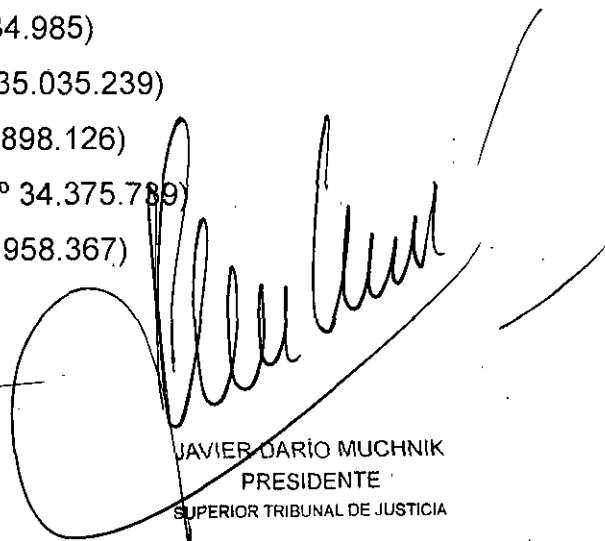 4.985)
35.035.239)
898.126)
º 34.375.789)
958.367)
JAVIER DARÍO MUCHNIK
PRESIDENTE
SUPERIOR TRIBUNAL DE JUSTICIA